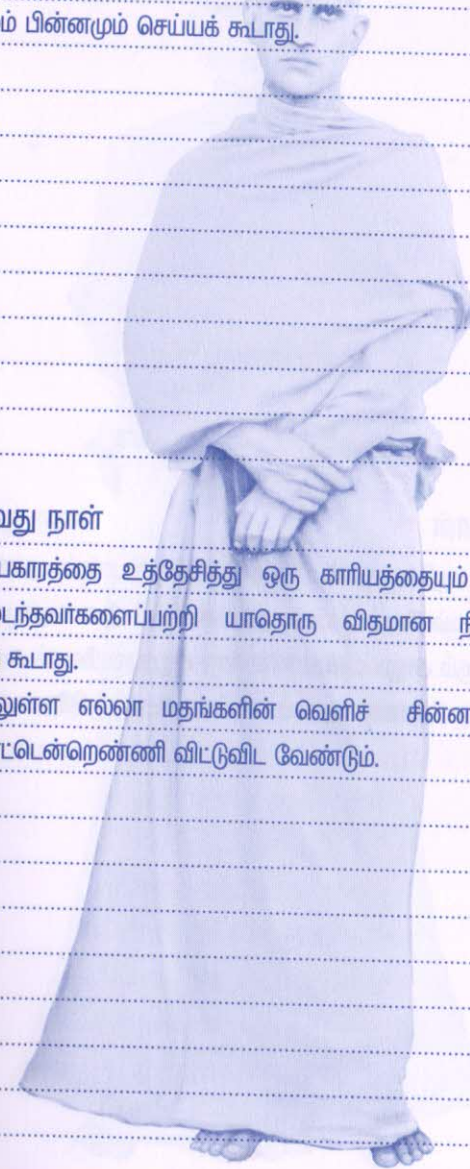 ம் பின்னமும் செய்யக் கூடாது.
வது நாள்
பகாரத்தை உத்தேசித்து ஒரு காரியத்தையும்
டைந்தவர்களைப்பற்றி யாதொரு விதமான நி
கூடாது.
லுள்ள எல்லா மதங்களின் வெளிச் சின்ன
ட்டென்றெண்ணி விட்டுவிட வேண்டும்.